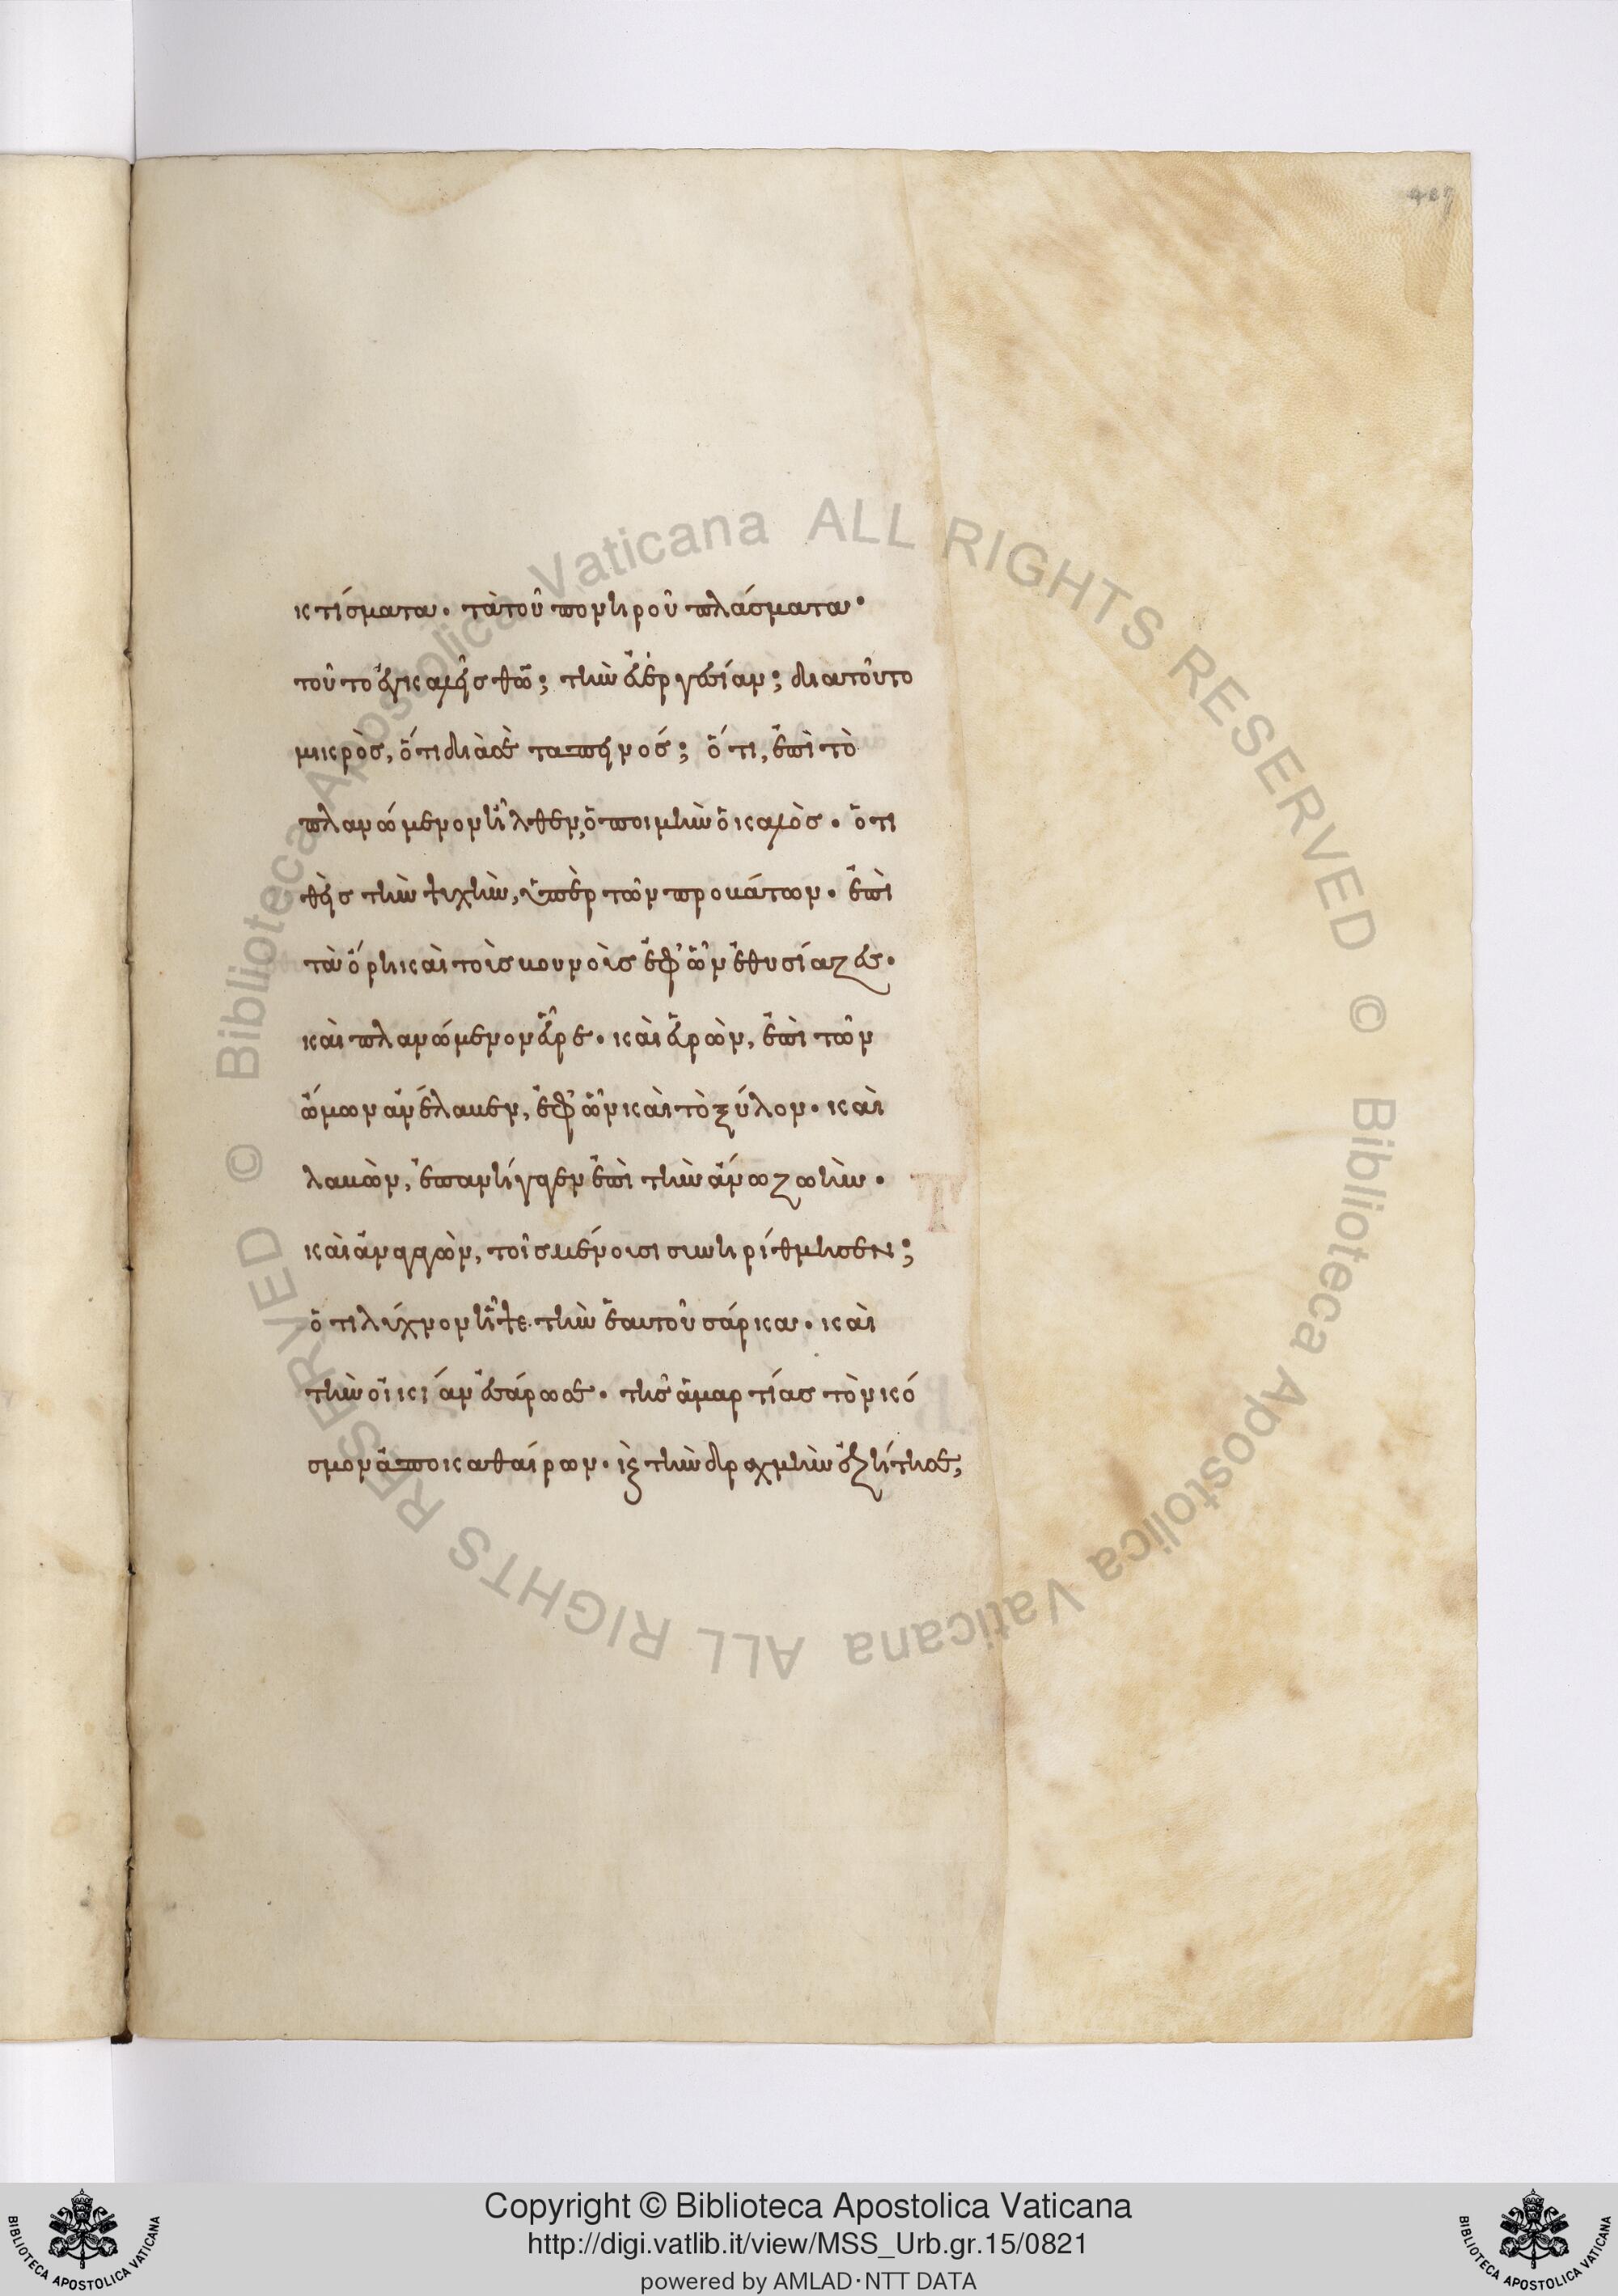 κτίσματα. τὰ τοῦ πονηροῦ πλάσματα·
τοῦτο ἐγκαλεῖς θῶ; τὴν εὐεργεσίαν; διατοῦτο
μικρὸς, ὅτι διὰ σὲ ταπεινός; ὅτι, ἐπὶ τὸ
πλανώμενον ἦλθεν, ὁ ποιμὴν ὁ καλὸς. ὁ τι
θεὶς τὴν ψυχὴν, ὑπὲρ τῶν προβάτων. ἐπὶ
τὰ ὄρη καὶ τοὺς βουνοὺς ἐφ' ὧν ἐθυσίαζες.
καὶ πλανώμενον εὗρε. καὶ εὑρὼν, ἐπὶ τῶν
ὤμων ἀνέλαβεν, ἐφ' ὧν καὶ τὸ ξύλον. καὶ
λαβὼν, ἐπανήγαγεν ἐπὶ τὴν ἄνω ζωήν.
καὶ ἀναγαγὼν, τοῖς μένουσι συνηρίθμησεν;
ὅτι λύχνον ἧψε τὴν ἑαυτοῦ σάρκα. καὶ
τὴν οἰκίαν ἐσάρωσε. τῆς ἁμαρτίας τὸν κό
σμον ἀποκαθαίρων. κ τὴν δραχμὴν ἐζήτησε,
407
Copyright © Biblioteca Apostolica Vaticana
http://digi.vatlib.it/view/MSS_Urb.gr.15/0821
powered by AMLAD·NTT DATA
BIBLIOTECA APOSTOLICA VATICANA
BIBLIOTECA APOSTOLICA VATICANA
© Biblioteca Apostolica Vaticana ALL RIGHTS RESERVED © Biblioteca Apostolica Vaticana ALL RIGHTS RESERVED